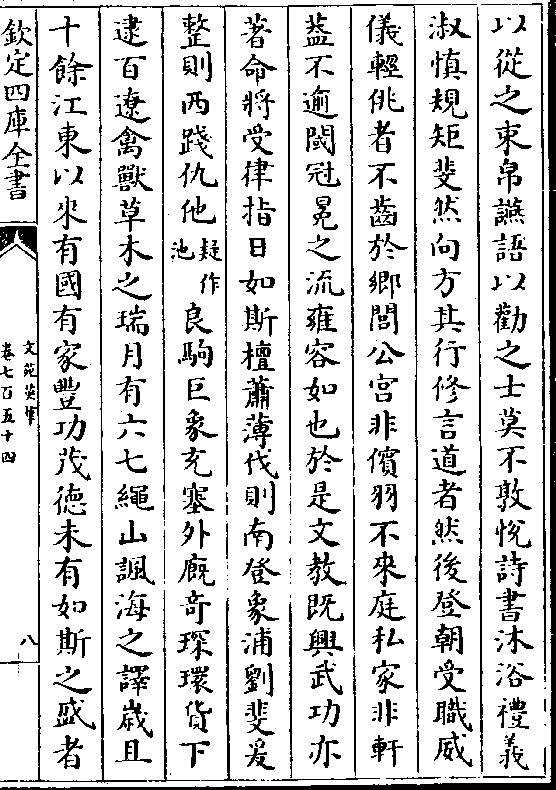 以從之束帛讌語以勸之士莫不敦悅詩書沐浴禮義
淑慎規矩斐然向方其行修言道者然後登朝受職威
儀輕佻者不齒於鄉閭公宮非儐羽不來庭私家非軒
葢不逾閾冠冕之流雍容如也於是文教既興武功亦
著命將受律指日如斯檀蕭薄伐則南登象浦劉斐爰
整則西踐仇他疑作池良駒巨象充塞外廐奇琛瓌貨下
逮百遼禽獸草木之瑞月有六七繩山諷海之譯歲且
十餘江東以來有國有家豐功茂德未有如斯之盛者
欽定四庫全書
文苑英華
卷七百五十四
八